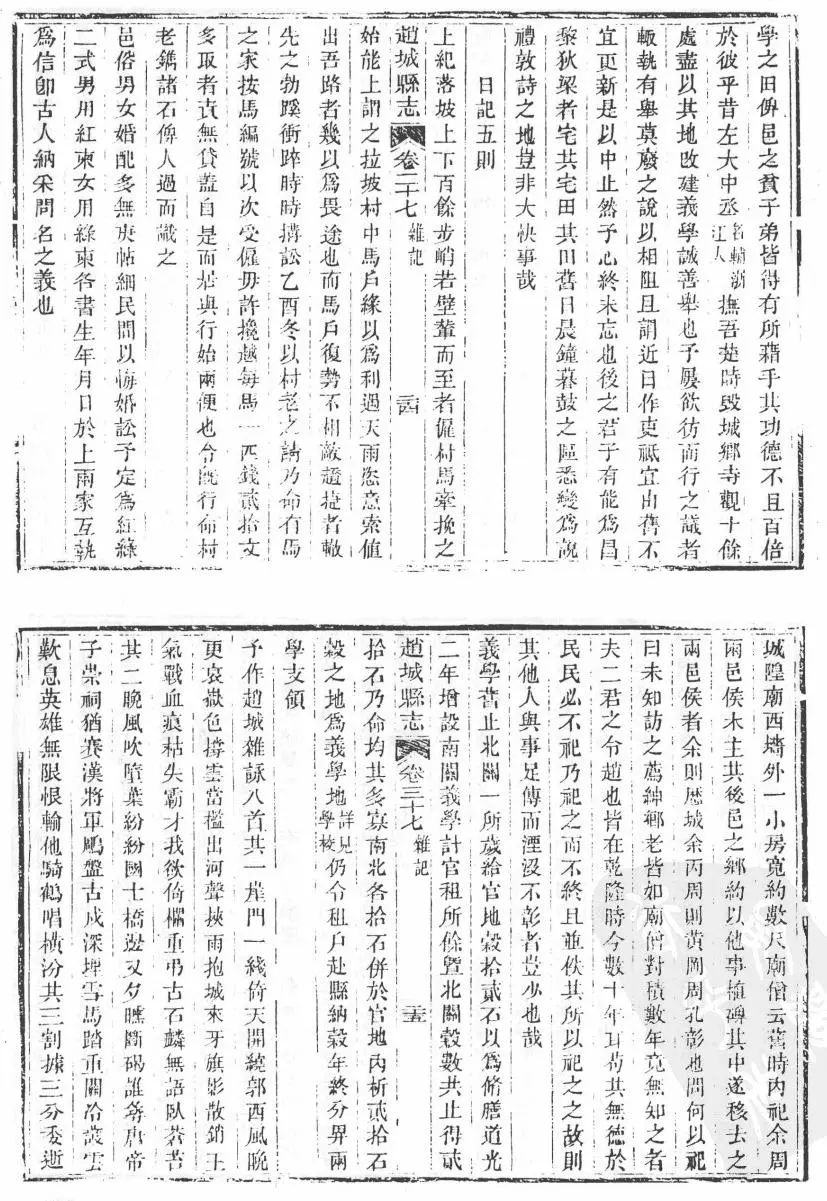 學之田俾邑之貧子弟皆得有所藉乎其功德不且百倍
於彼乎昔左大中丞名輔浙江人撫吾楚時毀城鄉寺觀十餘
處盡以其地改建義學誠善舉也予屢欲彷而行之議者
輙執有舉莫廢之說以相阻且謂近日作吏祗宜由舊不
宜更新是以中止然予心終未忘也後之君子有能爲昌
黎狄梁者宅共宅田其田舊日晨鐘暮鼓之區悉變爲說
禮敦詩之地豈非大快事哉
日記五則
上紀落坡上下百餘步峭若壁輦而至者僱村馬牽挽之
趙城縣志 卷三十七 雜記 二十四
始能上謂之拉坡村中馬戶緣以爲利過天雨恣意索値
出吾路者幾以爲畏途也而馬戶復勢不相敵趫捷者輙
先之勃蹊衝踤時時搆訟乙酉冬以村老之請乃命有馬
之家按馬編號以次受僱毋許攙越每馬一匹錢貳拾文
多取者責無貸蓋自是而居與行始兩便也今旣行命村
老鐫諸石俾人過而識之
邑俗男女婚配多無庚帖細民間以悔婚訟予定爲紅綠
二式男用紅柬女用綠柬各書生年月日於上兩家互執
爲信卽古人納采問名之義也
城隍廟西墻外一小房寬約數尺廟僧云舊時內祀余周
兩邑侯木主其後邑之鄉約以他事植碑其中遂移去之
兩邑侯者余則歷城余丙周則黃岡周孔彰也問何以祀
曰未知訪之薦紳鄉老皆如廟僧對積數年竟無知之者
夫二君之令趙也皆在乾隆時今數十年耳苟其無德於
民民必不祀乃祀之而不終且並佚其所以祀之之故則
其他人與事足傳而湮沒不彰者豈少也哉
義學舊止北關一所歲給官地穀拾貳石以爲脩膳道光
二年增設南關義學計官租所餘曁北關穀數共止得貳
趙城縣志 卷三十七 雜記 二十五
拾石乃命均其多寡南北各拾石併於官地內析貳拾石
穀之地爲義學地詳見學校仍令租戶赴縣納穀年終分畀兩
學支領
予作趙城雜詠八首其一崖門一綫倚天開繞郭西風晚
更哀嶽色撐雲當檻出河聲挾雨抱城來牙旗影散銷王
氣戰血痕枯失霸才我欲倚欄重弔古石麟無語臥蒼苔
其二晚風吹噴葉紛紛國士橋邊又夕曛斷碣誰尋唐帝
子荒祠猶賽漢將軍鵰盤古戍深埋雪馬踏重關冷叢雲
歎息英雄無限恨輸他騎鶴唱橫汾其三割據三分委逝